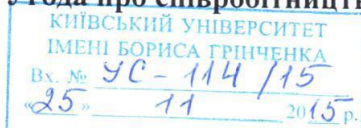 угода про співробітництв
КИЇВСЬКИЙ УНІВЕРСИТЕТ
ІМЕНІ БОРИСА ГРІНЧЕНКА
Вх. № УС - 114 /15
«25» 11 2015 р.